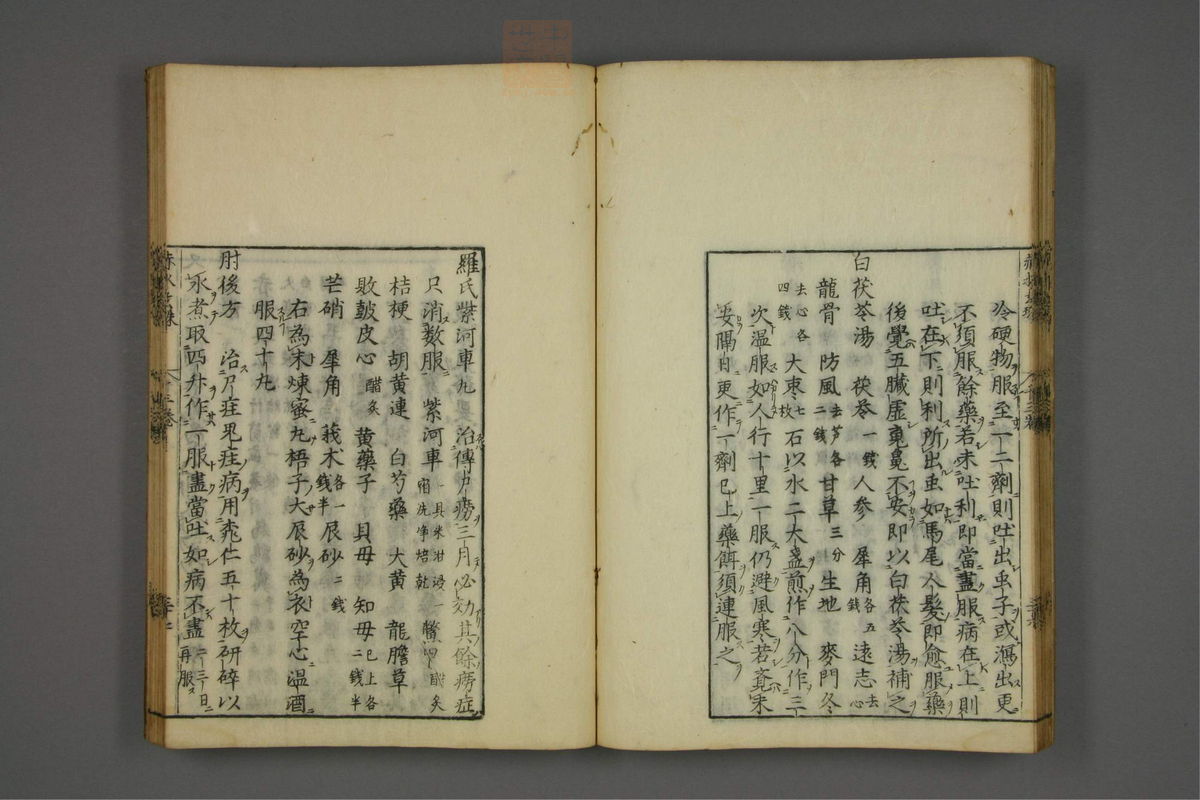 冷硬物服至一二劑則吐出虫子或瀉出更
不須服餘藥若未吐利即當盡服病在上則
吐在下則利所出虫如馬尾人髮即愈服藥
後覺五臟虛魂魄不安即以白茯苓湯補之
白茯苓湯 茯苓一錢人參 犀角各五錢遠志去心
龍骨 防風去芦各二錢甘草三分生地 麥門冬
去心各四錢大枣七枚石以水二大盞煎作八分作三
次温服如人行十里一服仍避風寒若未
妥隔日更作一劑已上藥餌須連服之
羅氏紫河車丸 治傳尸癆三月必効其餘癆症
只消数服 紫河車一具米泔浸一宿洗净焙乾鱉甲醋炙
桔梗 胡黄連 白芍藥 大黄 龍膽草
敗皷皮心醋炙黄藥子 貝毋 知毋已上各二錢半
芒硝 犀角 莪术各一錢半辰砂二錢
右為末煉蜜丸梧子大辰砂為衣空心温酒
服四十丸
肘後方 治尸疰鬼疰病用桃仁五十枚研碎以
水煮取四升作一服盡當吐如病不盡二三日再服